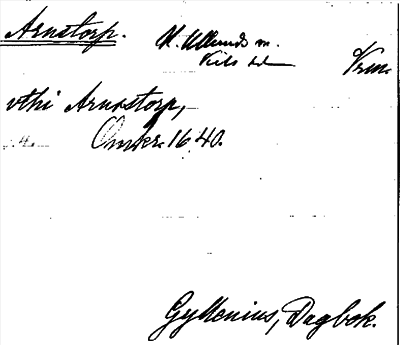 Arnstorp.
K. Ullunds m.
Vrm.
vthi Arnestorp,
Omkr. 1640.
Gyllenius, Dagbok.